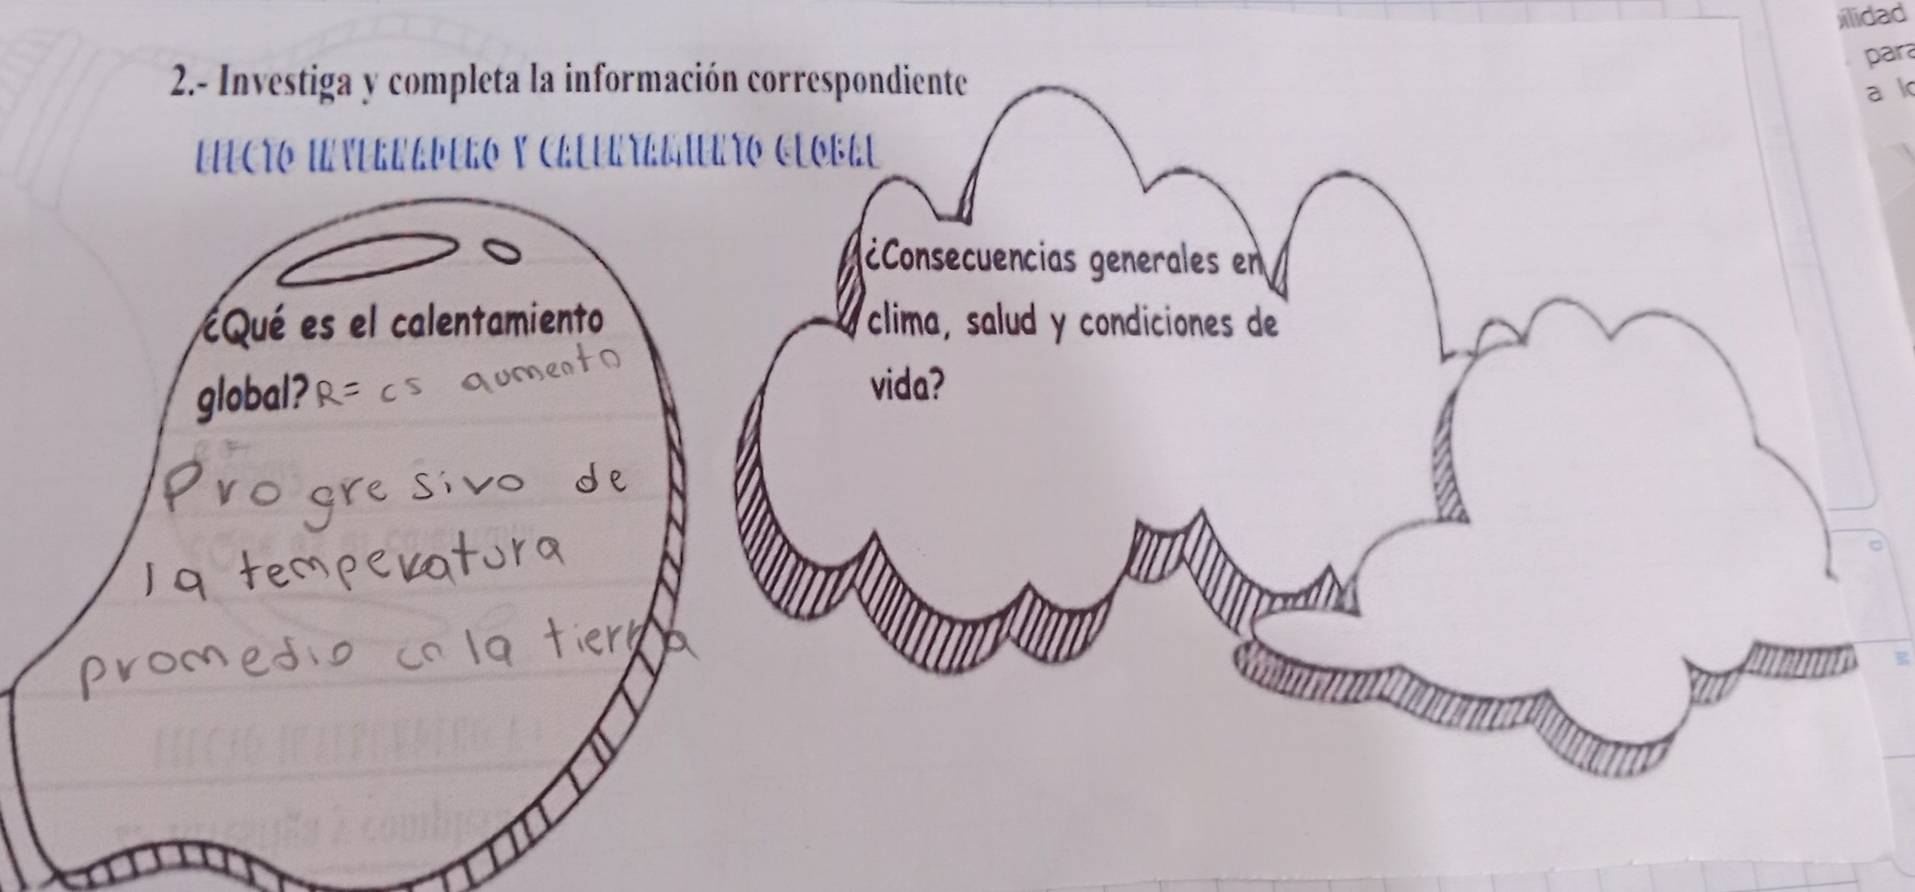 2.- Investiga y completa la información correspondiente
EFECTO INVERNADERO Y CALENTAMIENTO GLOBAL
¿Qué es el calentamiento
global? R= es aumento
Progresivo de
la temperatura
promedio en la tierra
¿Consecuencias generales en
clima, salud y condiciones de
vida?
ilidad
para
a lo